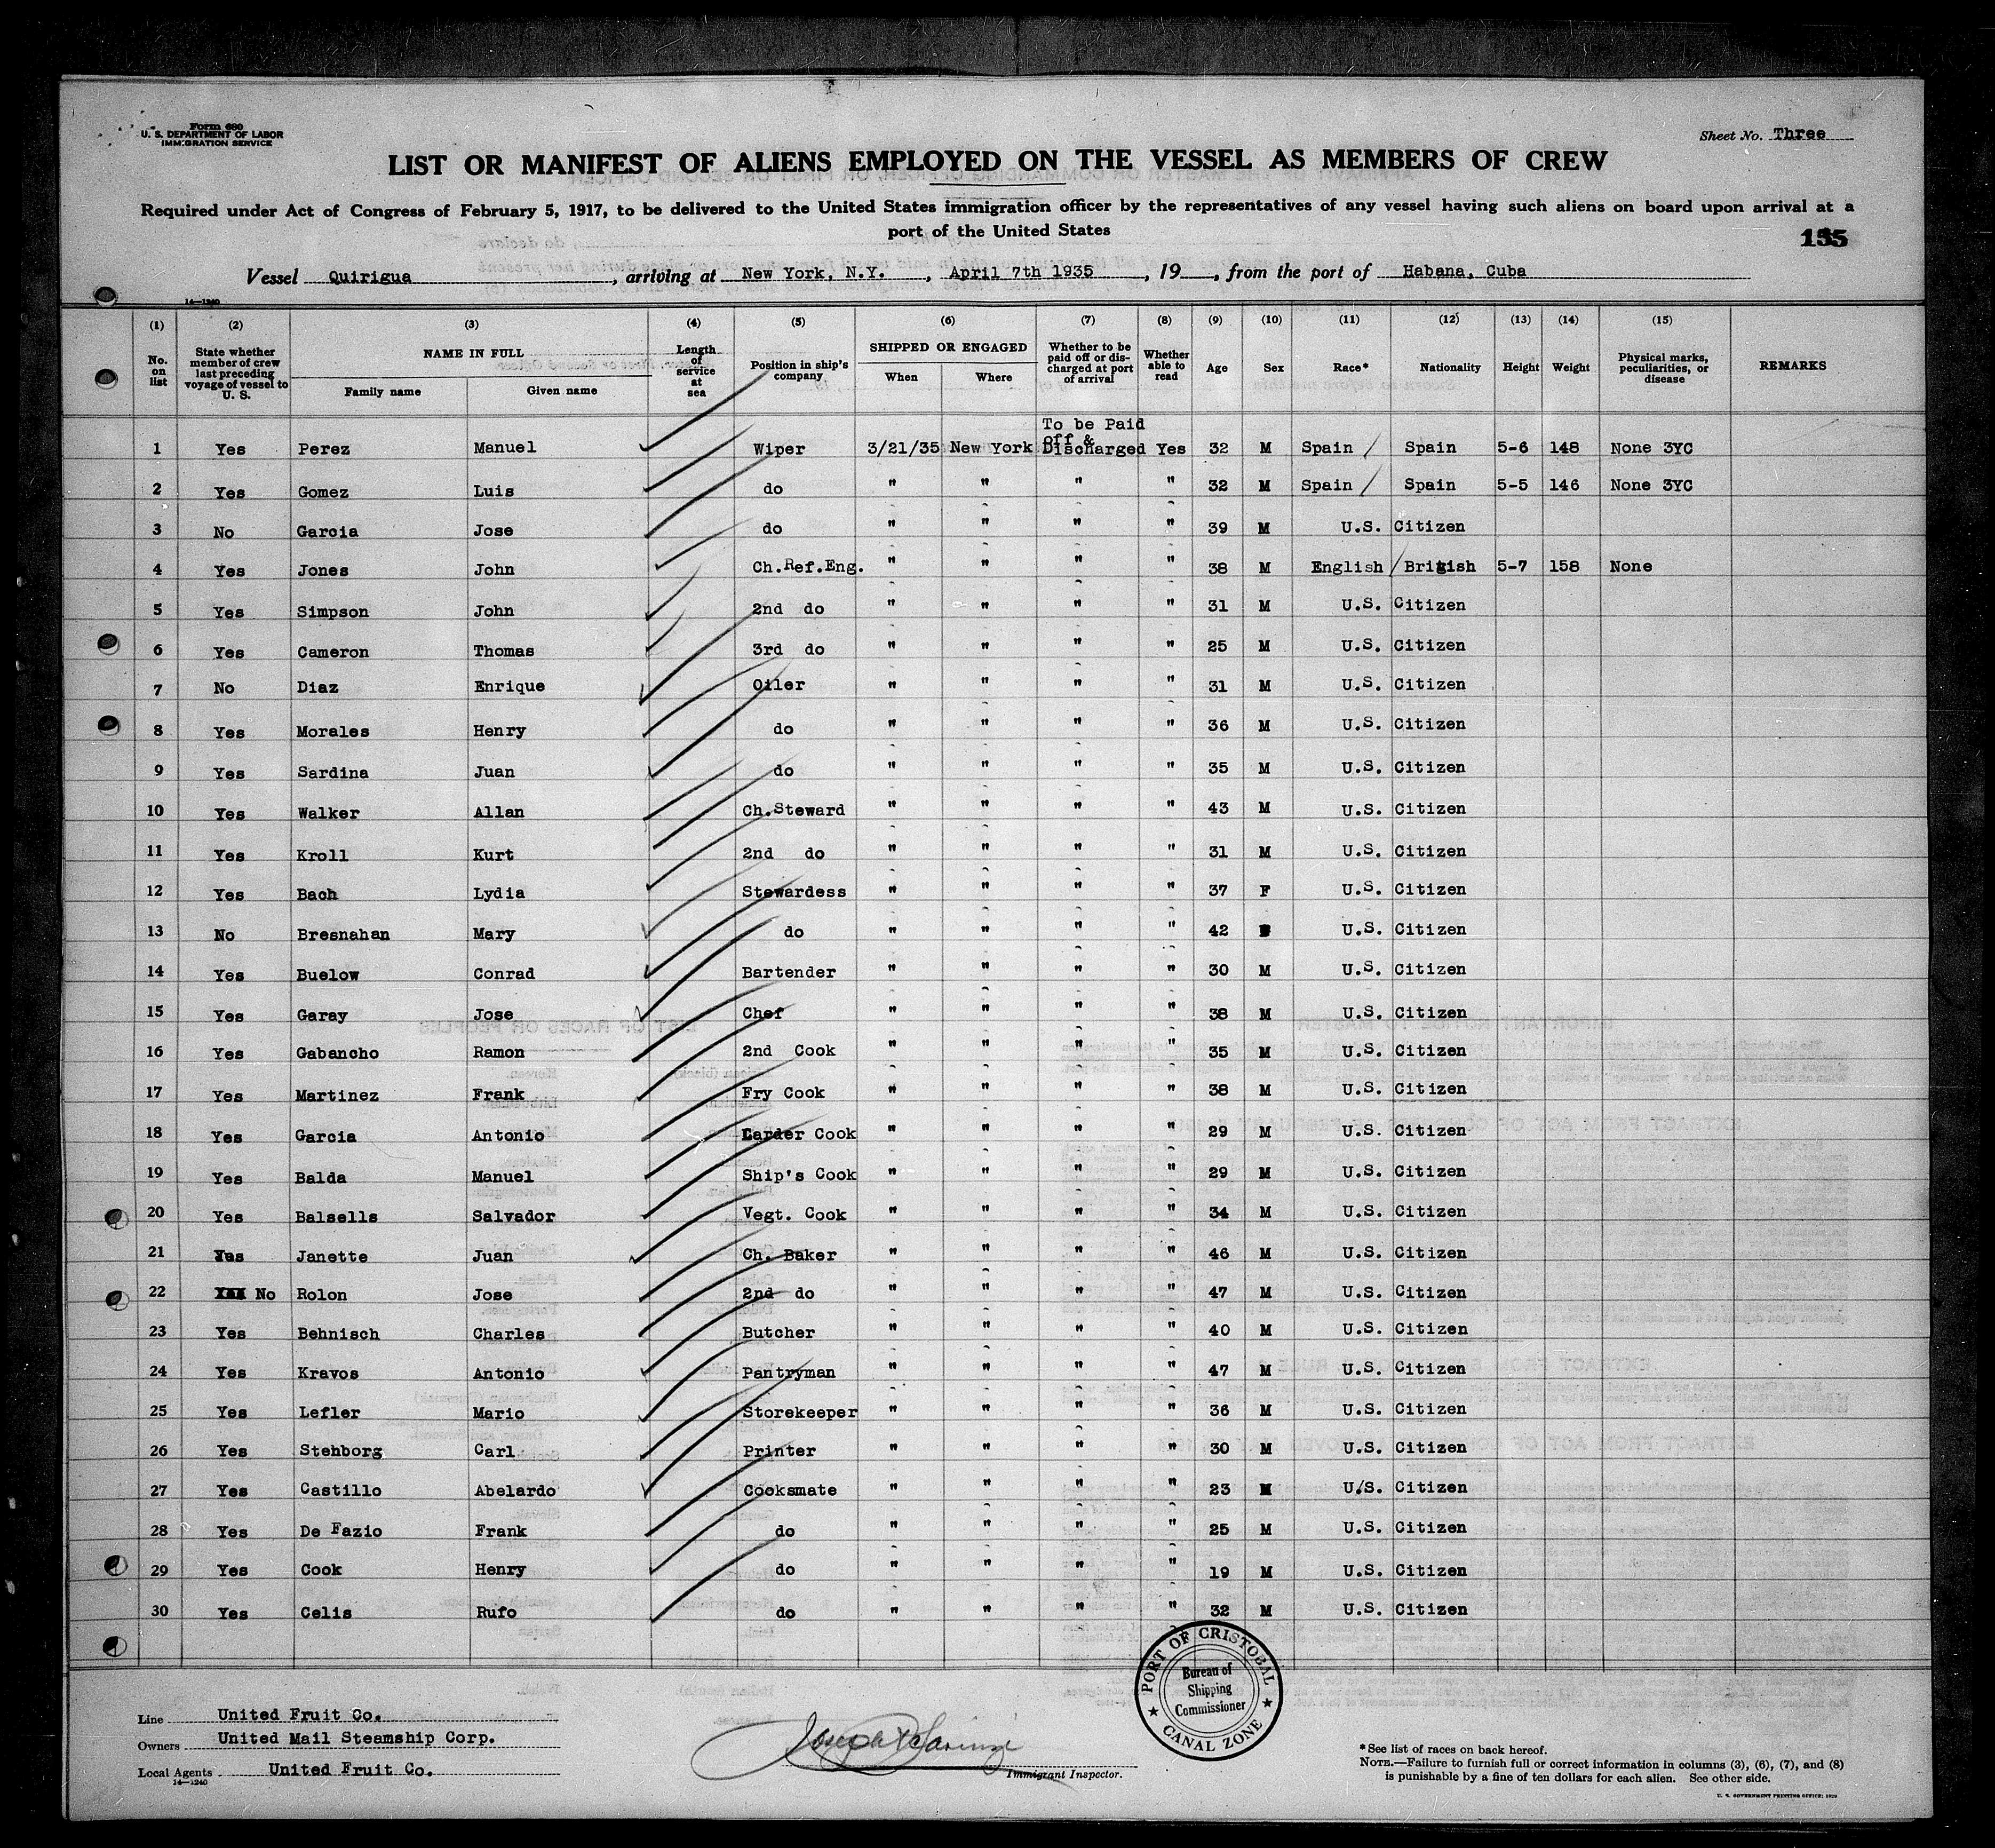 Form 680
U. S. DEPARTMENT OF LABOR
IMMIGRATION SERVICE
Sheet No. Three
LIST OR MANIFEST OF ALIENS EMPLOYED ON THE VESSEL AS MEMBERS OF CREW
Required under Act of Congress of February 5, 1917, to be delivered to the United States immigration officer by the representatives of any vessel having such aliens on board upon arrival at a
port of the United States
135
Vessel Quirigua, arriving at New York, N.Y., April 7th 1935, 19, from the port of Habana, Cuba
14—1240
(1) (2) (3) (4) (5) (6) (7) (8) (9) (10) (11) (12) (13) (14) (15)
No. on list State whether member of crew last preceding voyage of vessel to U. S. NAME IN FULL Family name Given name Length of service at sea Position in ship's company SHIPPED OR ENGAGED When Where Whether to be paid off or discharged at port of arrival Whether able to read Age Sex Race* Nationality Height Weight Physical marks, peculiarities, or disease REMARKS
1 Yes Perez Manuel Wiper 3/21/35 New York To be Paid off & Discharged Yes 32 M Spain / Spain 5-6 148 None 3YC
2 Yes Gomez Luis do " " " " 32 M Spain / Spain 5-5 146 None 3YC
3 No Garcia Jose do " " " " 39 M U.S. Citizen
4 Yes Jones John Ch.Ref.Eng. " " " " 38 M English / British 5-7 158 None
5 Yes Simpson John 2nd do " " " " 31 M U.S. Citizen
6 Yes Cameron Thomas 3rd do " " " " 25 M U.S. Citizen
7 No Diaz Enrique Oiler " " " " 31 M U.S. Citizen
8 Yes Morales Henry do " " " " 36 M U.S. Citizen
9 Yes Sardina Juan do " " " " 35 M U.S. Citizen
10 Yes Walker Allan Ch.Steward " " " " 43 M U.S. Citizen
11 Yes Kroll Kurt 2nd do " " " " 31 M U.S. Citizen
12 Yes Bach Lydia Stewardess " " " " 37 F U.S. Citizen
13 No Bresnahan Mary do " " " " 42 U.S. Citizen
14 Yes Buelow Conrad Bartender " " " " 30 M U.S. Citizen
15 Yes Garay Jose Chef " " " " 38 M U.S. Citizen
16 Yes Gabancho Ramon 2nd Cook " " " " 35 M U.S. Citizen
17 Yes Martinez Frank Fry Cook " " " " 38 M U.S. Citizen
18 Yes Garcia Antonio Larder Cook " " " " 29 M U.S. Citizen
19 Yes Balda Manuel Ship's Cook " " " " 29 M U.S. Citizen
20 Yes Balsells Salvador Vegt. Cook " " " " 34 M U.S. Citizen
21 Yes Janette Juan Ch. Baker " " " " 46 M U.S. Citizen
22 No Rolon Jose 2nd do " " " " 47 M U.S. Citizen
23 Yes Behnisch Charles Butcher " " " " 40 M U.S. Citizen
24 Yes Kravos Antonio Pantryman " " " " 47 M U.S. Citizen
25 Yes Lefler Mario Storekeeper " " " " 36 M U.S. Citizen
26 Yes Stehborg Carl Printer " " " " 30 M U.S. Citizen
27 Yes Castillo Abelardo Cooksmate " " " " 23 M U/S. Citizen
28 Yes De Fazio Frank do " " " " 25 M U.S. Citizen
29 Yes Cook Henry do " " " " 19 M U.S. Citizen
30 Yes Celis Rufo do " " " " 32 M U.S. Citizen
PORT OF CRISTOBAL
Bureau of
Shipping
Commissioner
★ CANAL ZONE ★
Line United Fruit Co.
Owners United Mail Steamship Corp.
Local Agents United Fruit Co.
14—1240
Immigrant Inspector.
*See list of races on back hereof.
NOTE.—Failure to furnish full or correct information in columns (3), (6), (7), and (8)
is punishable by a fine of ten dollars for each alien. See other side.